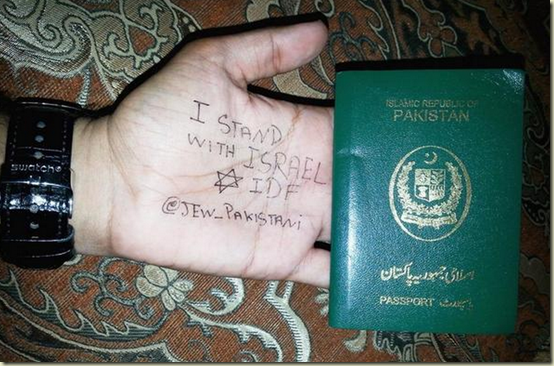 swatch
I STAND
WITH ISRAEL
IDF
@JEW_PAKISTANi
ISLAMIC REPUBLIC OF
PAKISTAN
اسلامی جمہوریہ پاکستان
PASSPORT پاسپورٹ